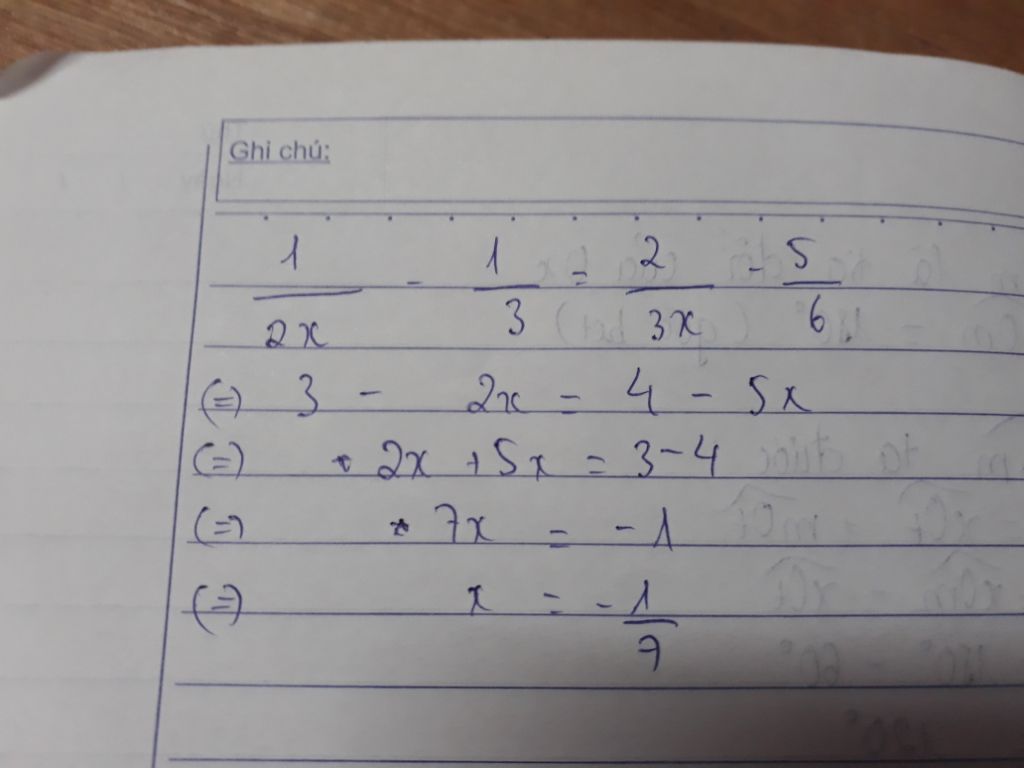 Ghi chú:
1/2x - 1/3 = 2/3x - 5/6
(=) 3 - 2x = 4 - 5x
(=) 2x + 5x = 3 - 4
(=) 7x = - 1
(=) x = - 1/7